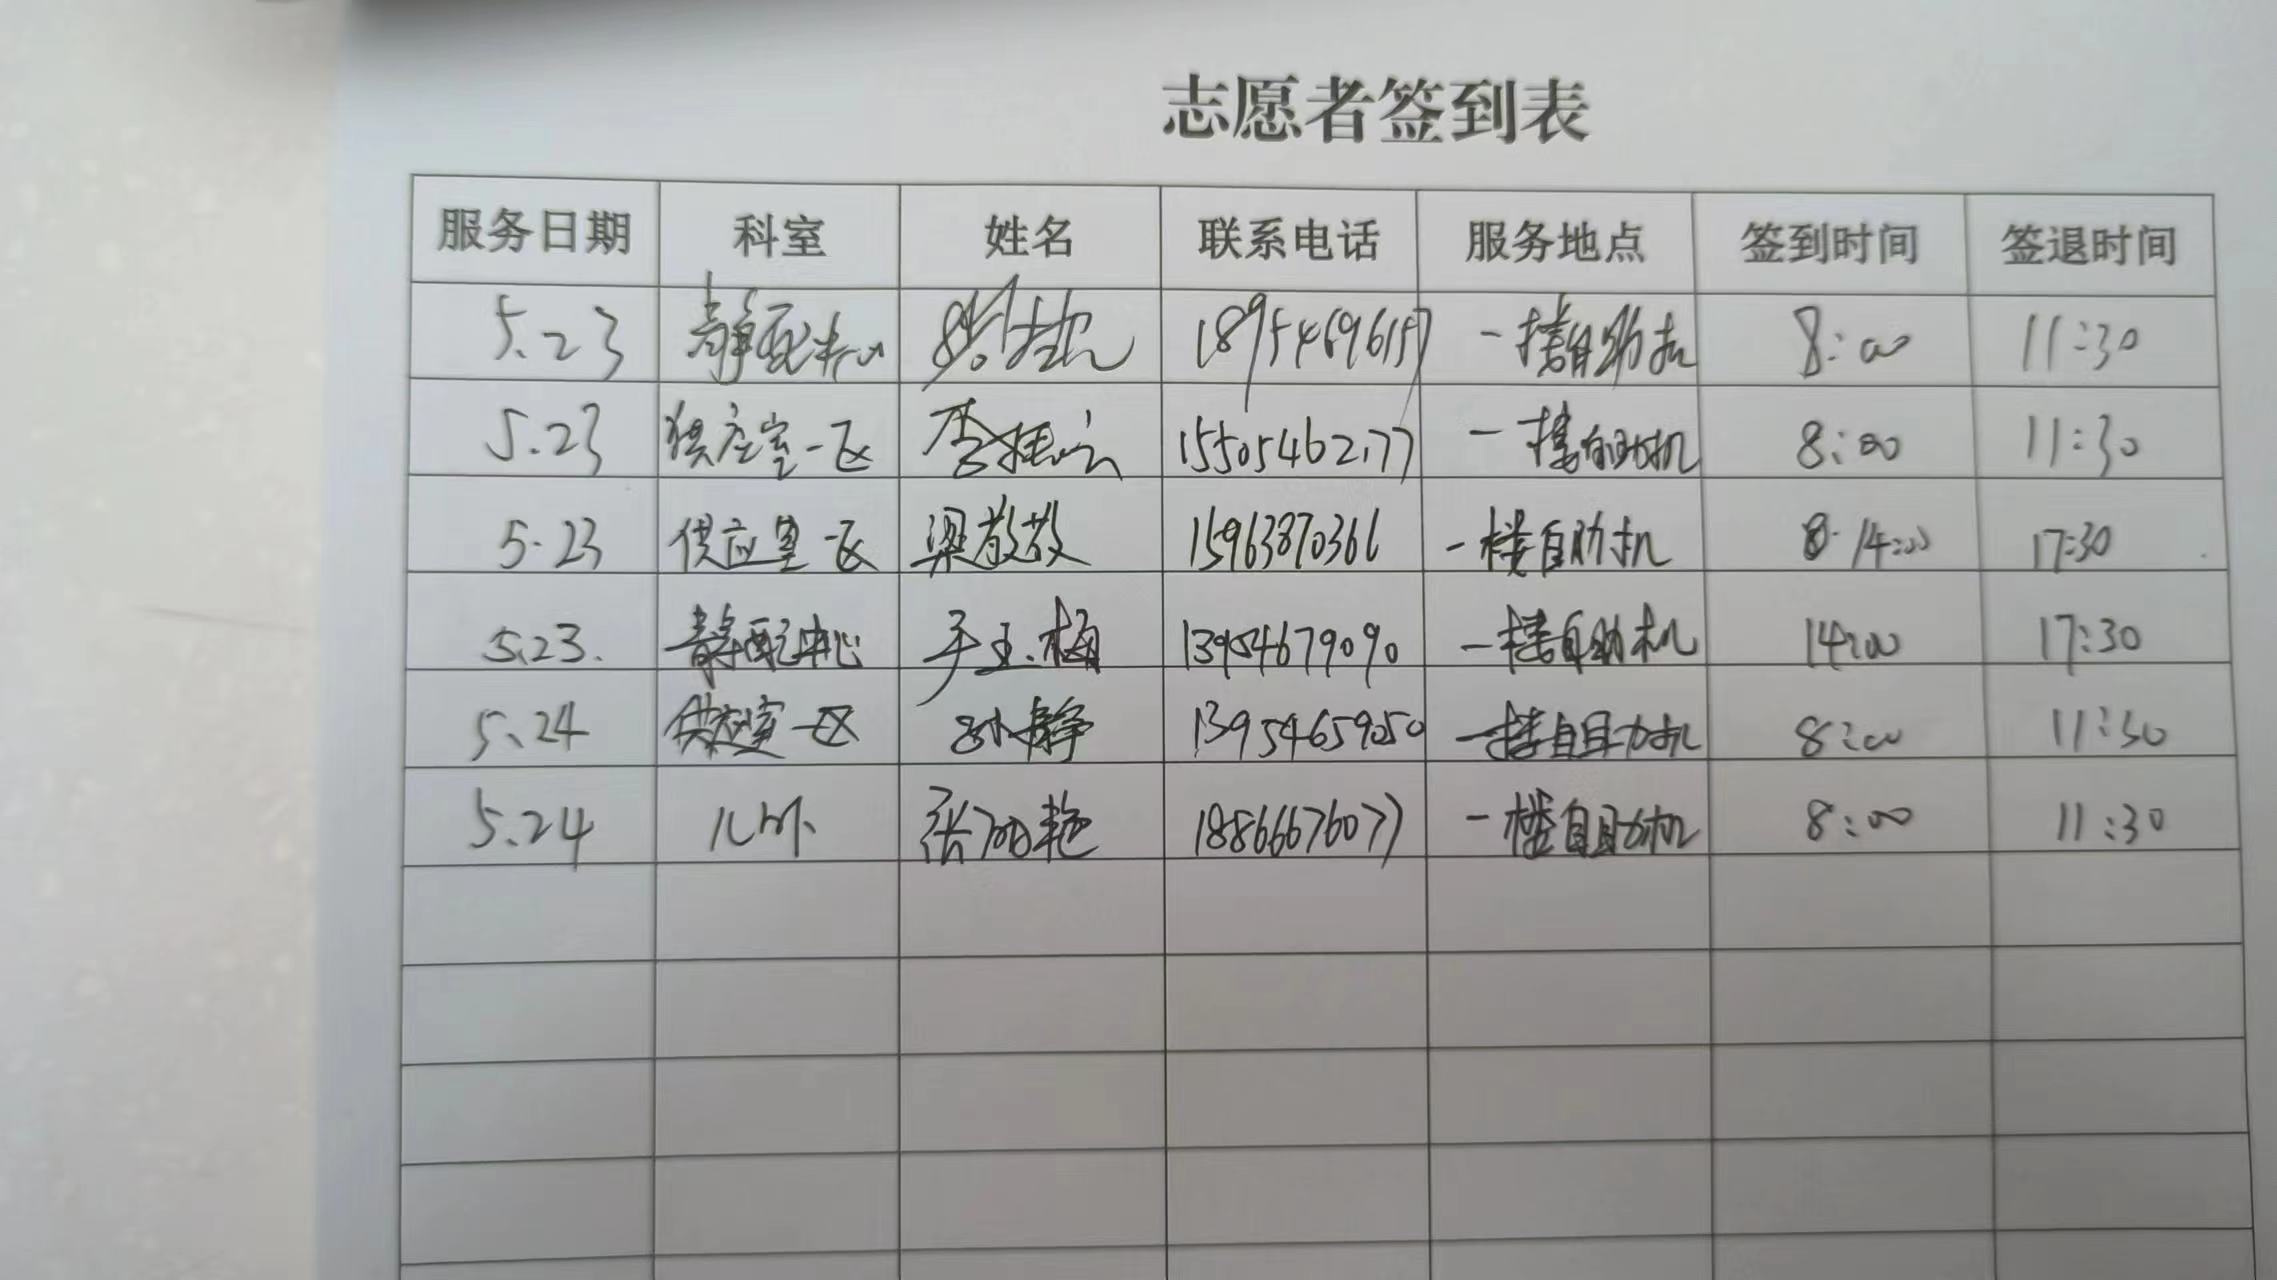 志愿者签到表
服务日期 科室 姓名 联系电话 服务地点 签到时间 签退时间
5.23 静配中心 一楼自助机 8:00 11:30
5.23 供应室一区 李 15505462177 一楼自助机 8:00 11:30
5.23 供应室一区 梁敬敬 15963870366 一楼自助机 14:00 17:30
5.23. 静配中心 于玉梅 13954679090 一楼自助机 14:00 17:30
5.24 供应室一区 孙静 13954659050 一楼自助机 8:00 11:30
5.24 儿外 张丽艳 18866676077 一楼自助机 8:00 11:30